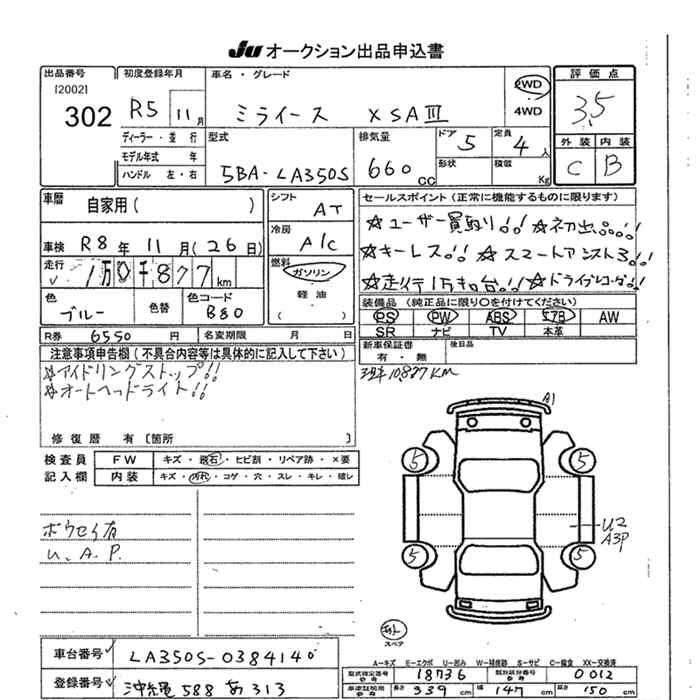 JU オークション出品申込書
出品番号
[2002]
302
初度登録年月
R5 11月
車名・グレード
ミライース XSAⅢ
2WD
4WD
評価点
3.5
外装 内装
C B
ディーラー・並行
モデル年式 年
ハンドル 左・右
型式
5BA-LA350S
排気量
660 CC
ドア 5
形状
定員 4人
積載 Kg
車歴
自家用( )
車検 R8年11月(26日)
走行 1万0千877km
色 ブルー
色替
色コード B80
シフト AT
冷房 A/C
燃料
ガソリン
軽油
( )
セールスポイント(正常に機能するものに限ります)
☆ユーザー買取り!! ☆初出品!!
☆キーレス!! ☆スマートアシスト3!!
☆走行1万キロ台!! ☆ドライブレコーダ!!
装備品(純正品に限り○を付けてください)
PS PW ABS エアB AW
SR ナビ TV 本革
R券 6550円 名変期限 月 日
新車保証書
有・無
後日品
注意事項申告欄(不具合内容等は具体的に記入して下さい)
☆アイドリングストップ!!
☆オートヘッドライト!!
修復歴 有[箇所 ]
現車10,877KM
検査員
記入欄
FW キズ・飛石・ヒビ割・リペア跡・×要
内装 キズ・汚れ・コゲ・穴・スレ・キレ・破レ
ボウセイ有
U、A、P.
A1
5 5
U2
A3P
5 5
スペア
A-キズ E-エクボ U-凹み W-補修跡 S-サビ C-腐食 XX-交換済
車台番号 LA350S-0384140
登録番号 沖縄588あ313
型式指定番号 18736
類別区分番号 0012
長さ 339cm 幅 147cm 高さ 150cm